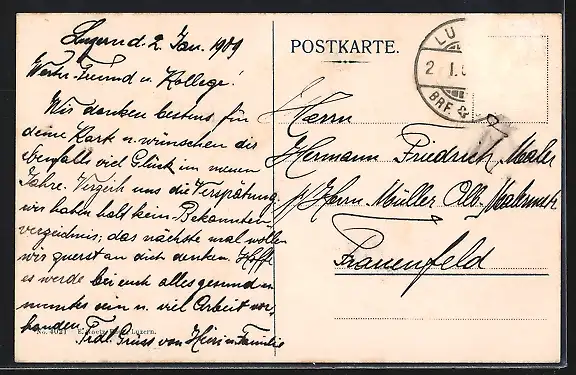 Luzern d. 2. Jan. 1909
Werter Freund u. Kollege!
Wir danken bestens für
deine Kart u. wünschen dir
ebenfalls viel Glück im neuen
Jahre. Verzeih uns die Verspätung
wir haben halt kein Bekannten-
verzeichnis; das nächste mal wollen
wir zuerst an dich denken. Hoffe
es werde bei euch alles gesund u.
munter sein u. viel Arbeit vor-
handen. Frdl. Gruss von Familie
No. 4021 E. Goetz, Luzern.
POSTKARTE.
LU
2 I.
BRF.
Herrn
Hermann Friedrich, Maler
p/ Herrn Müller Alb. Malermstr
Frauenfeld